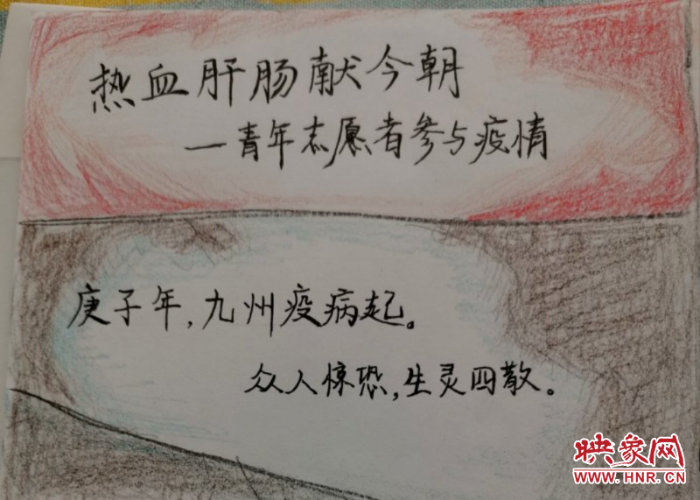 热血肝肠献今朝
—青年志愿者参与疫情
庚子年,九州疫病起。
众人惊恐,生灵四散。
映象网
WWW.HNR.CN